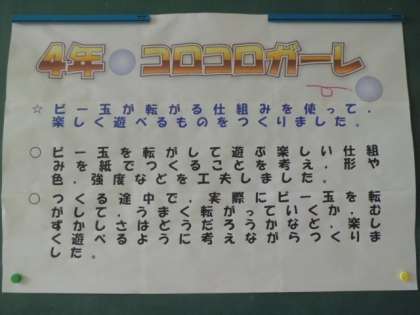 4年 コロコロガーレ
☆ ビー玉が転がる仕組みを使って、
楽しく遊べるものをつくりました。
○ ビー玉を転がして遊ぶ楽しい仕組
みを紙でつくることを考え、形や
色、強度などを工夫しました。
○ つくる途中で、実際にビー玉を転
がして、うまく転がっていくか、む
ずかしさはどうだろうかなど、楽し
く遊べるように考えながらつくりま
した。